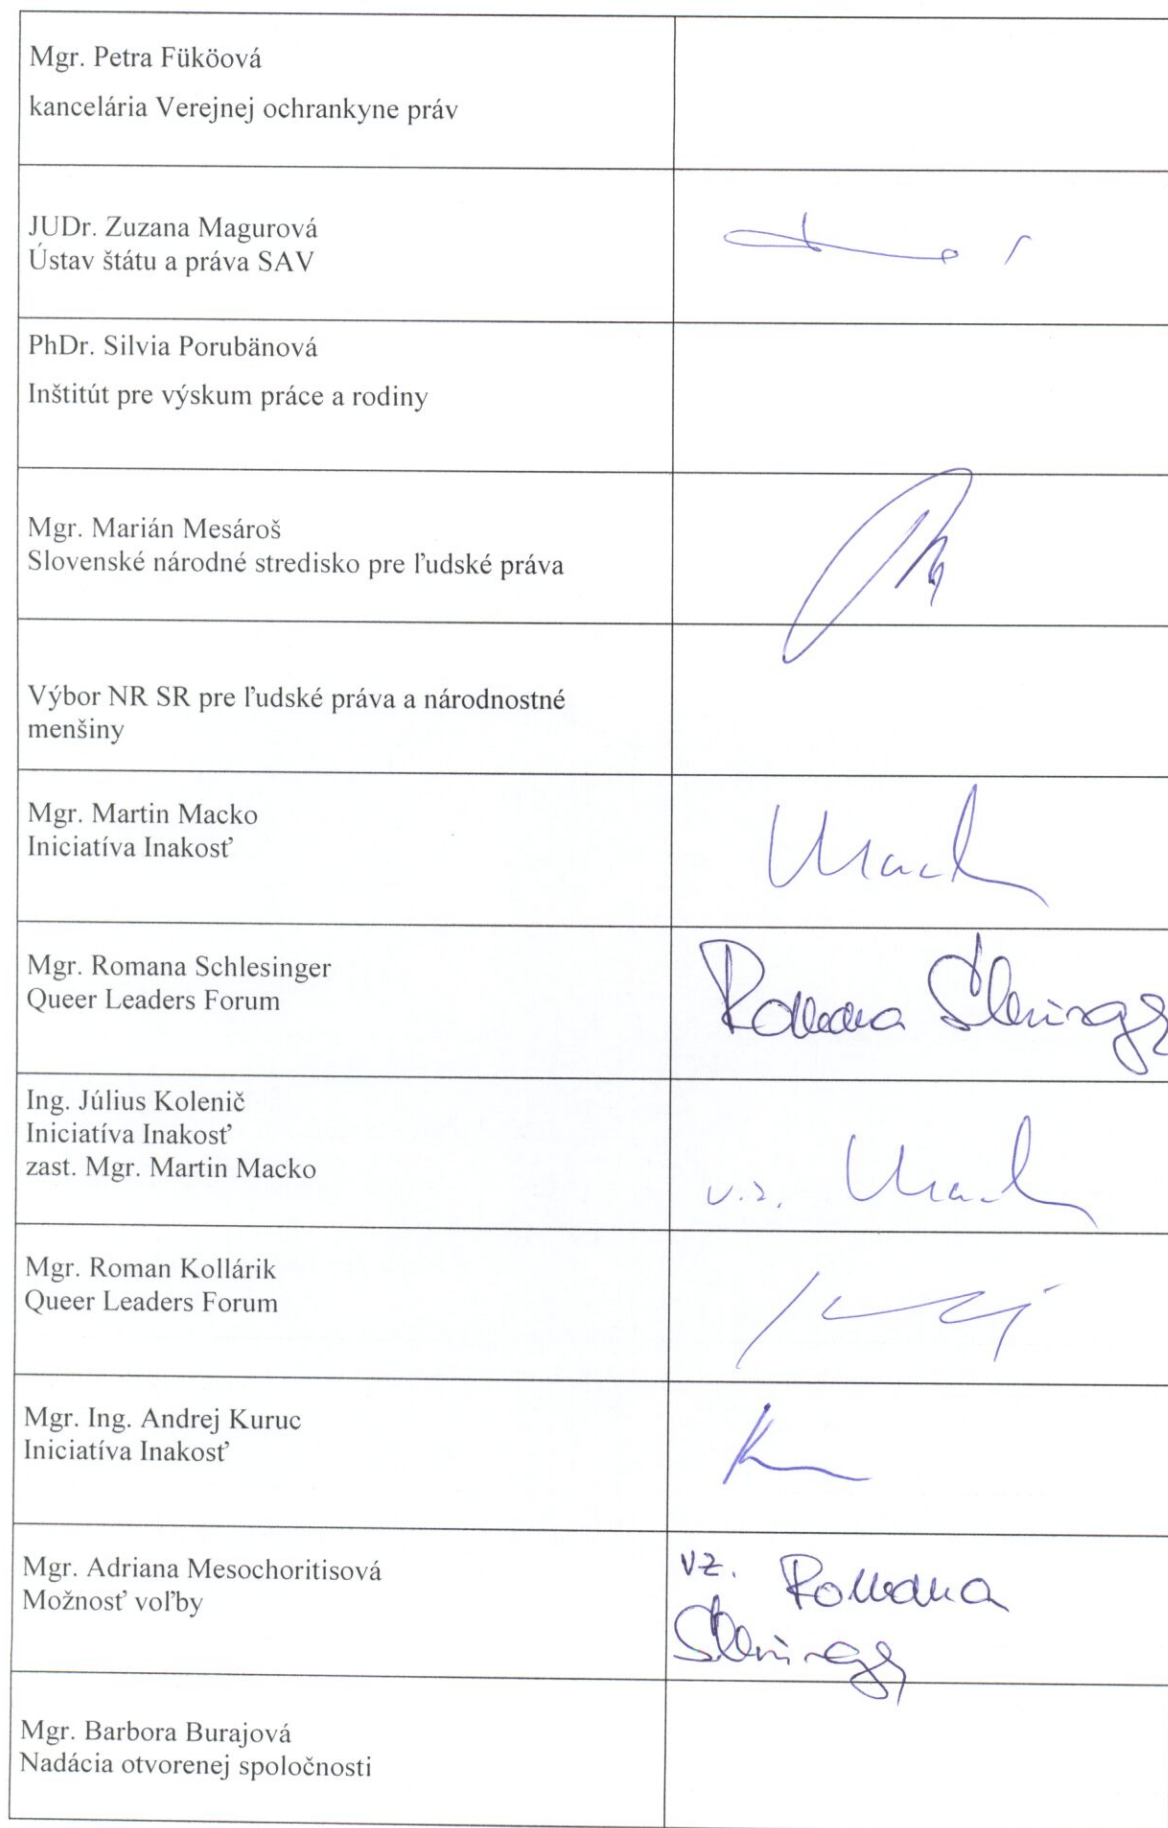 Mgr. Petra Füköová
kancelária Verejnej ochrankyne práv
JUDr. Zuzana Magurová
Ústav štátu a práva SAV
PhDr. Silvia Porubänová
Inštitút pre výskum práce a rodiny
Mgr. Marián Mesároš
Slovenské národné stredisko pre ľudské práva
Výbor NR SR pre ľudské práva a národnostné
menšiny
Mgr. Martin Macko
Iniciatíva Inakosť
Mgr. Romana Schlesinger
Queer Leaders Forum
Romana
Ing. Július Kolenič
Iniciatíva Inakosť
zast. Mgr. Martin Macko
v.z.
Mgr. Roman Kollárik
Queer Leaders Forum
Mgr. Ing. Andrej Kuruc
Iniciatíva Inakosť
Mgr. Adriana Mesochoritisová
Možnosť voľby
vz. Romana
Mgr. Barbora Burajová
Nadácia otvorenej spoločnosti